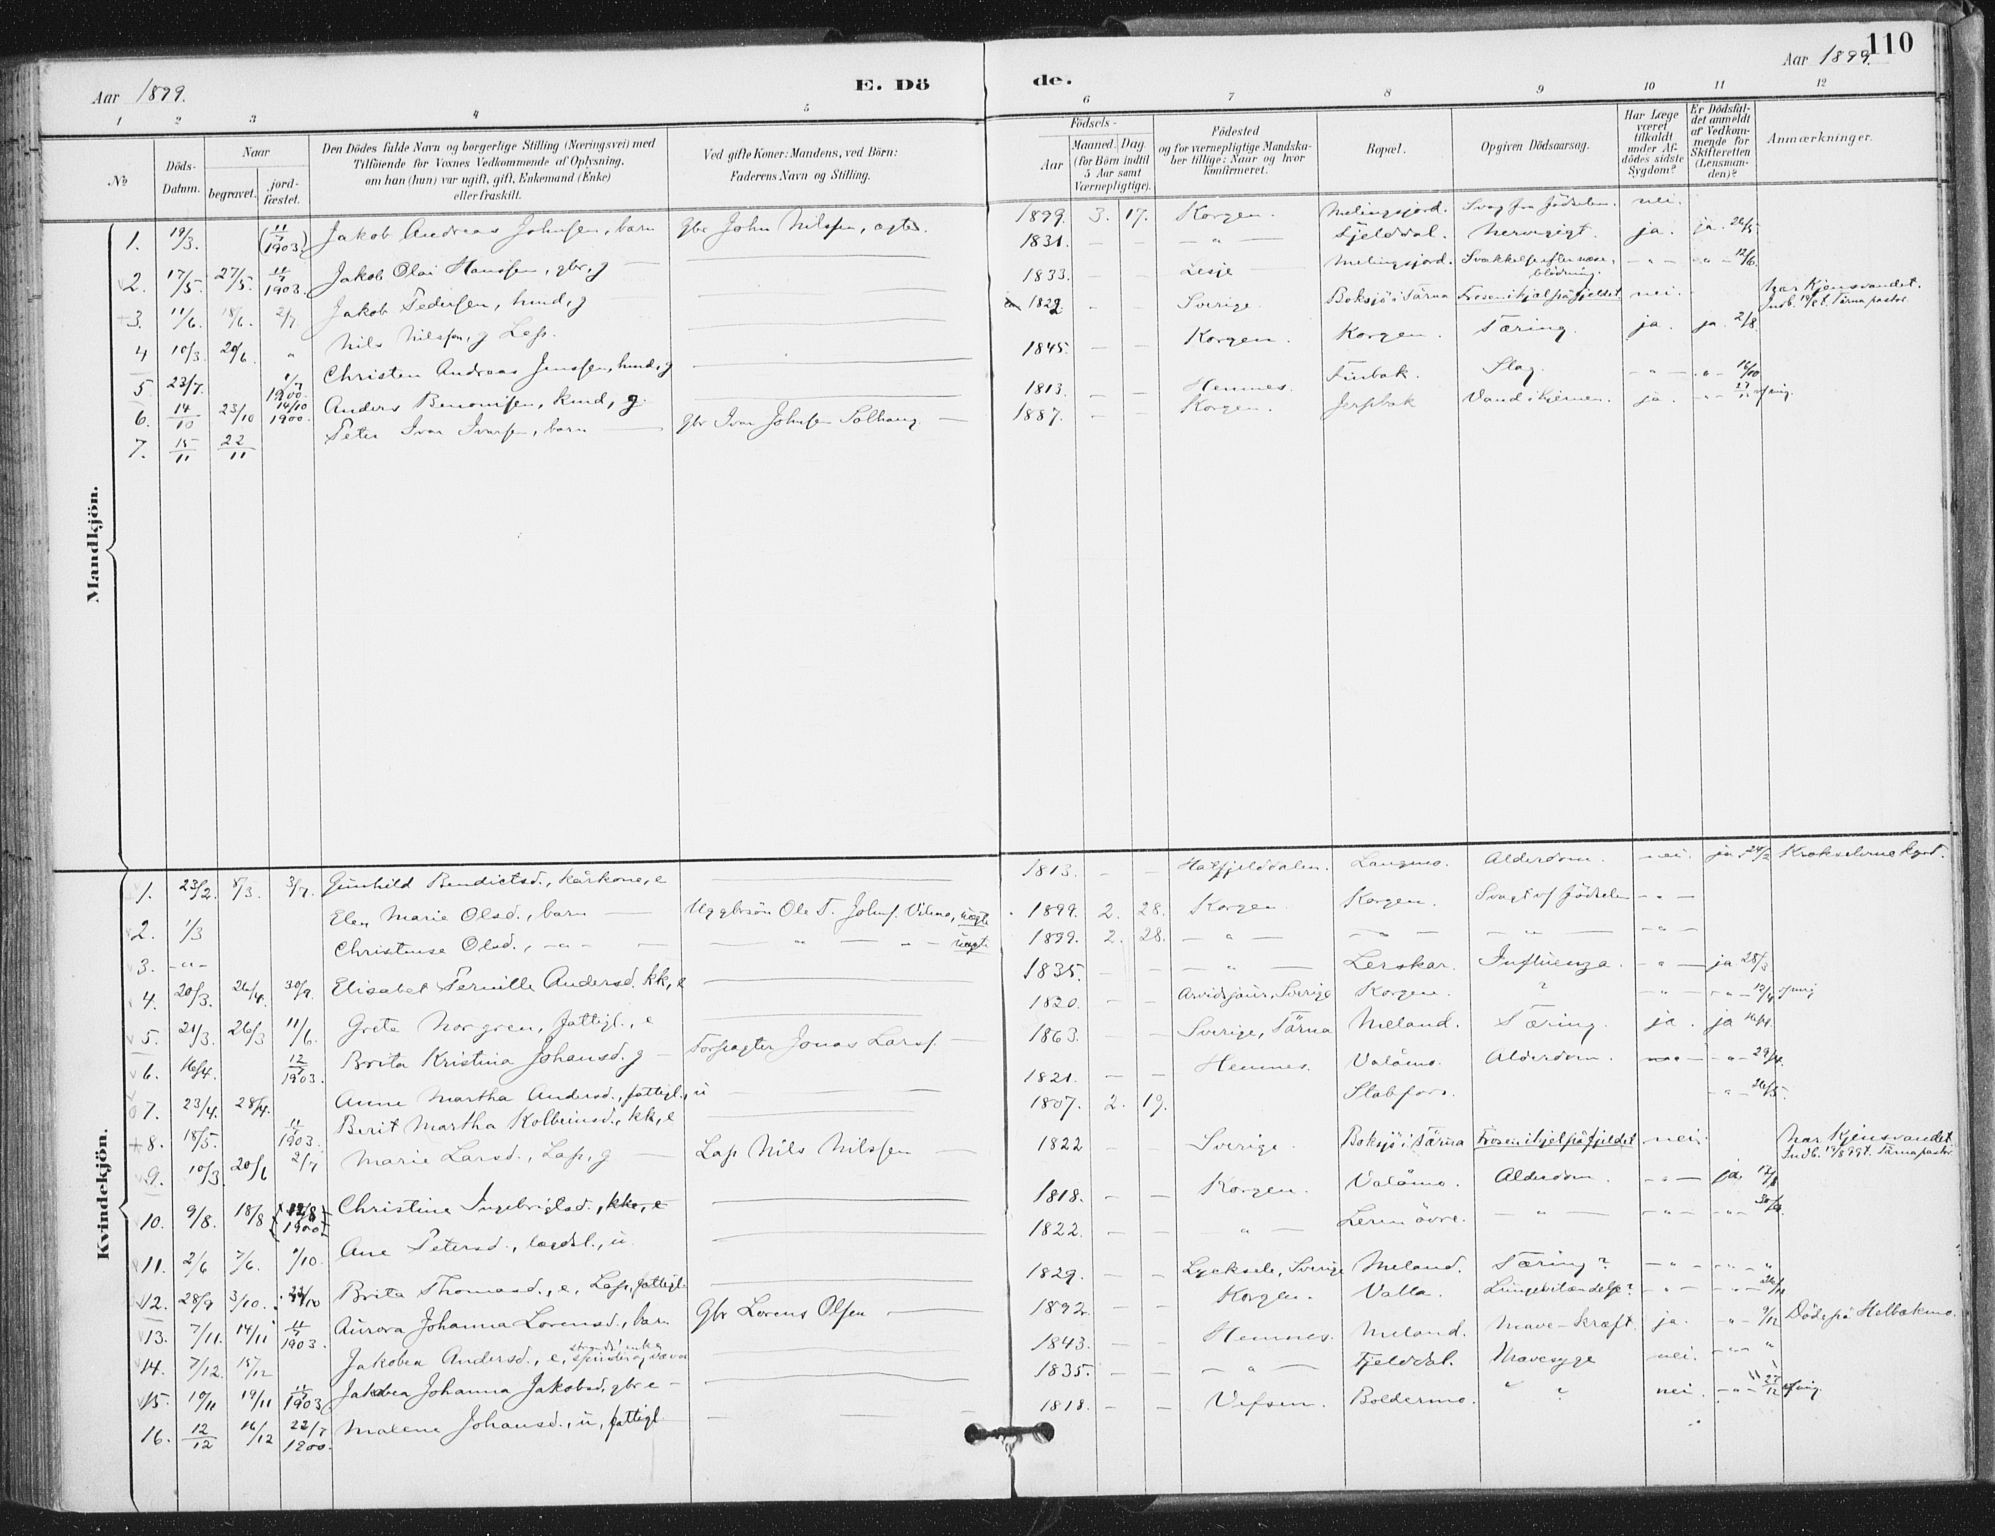 110
Aar 1899.
E. Dö
de.
Aar 1899.
1 2 3 4 5 6 7 8 9 10 11 12
№
Döds-Datum.
Naar
begravet.
jord-fæstet.
Den Dödes fulde Navn og borgerlige Stilling (Næringsvei) med
Tilföiende for Voxnes Vedkommende af Oplysning,
om han (hun) var ugift, gift, Enkemand (Enke)
eller fraskilt.
Ved gifte Koner: Mandens, ved Börn:
Faderens Navn og Stilling.
Födsels-
Aar
Maaned. Dag.
(for Börn indtil
5 Aar samt
Værnepligtige).
Födested
og for værnepligtige Mandska-
ber tillige: Naar og hvor
konfirmeret.
Bopæl.
Opgiven Dödsaarsag.
Har Læge
været
tilkaldt
under Af-
dödes sidste
Sygdom?
Er Dödsfal-
det anmeldt
af Vedkom-
mende for
Skifteretten
(Lensman-
den)?
Anmærkninger.
Mandkjön.
1. 19/3. (11/7 1903) Jakob Andreas Johnsen, barn Gbr John Nilssen, ægte. 1899. 3. 17. Korgen. Melingsjord. Svag fra Födselen. nei.
2. 17/5. 27/5. 11/7 1903. Jakob Olai Hanssen, gbr, g — 1831. - - - " - Fjelddal. Nervegigt. ja. ja. 26/5
3. 11/6. 18/6. 2/7 Jakob Pedersen, husmd, g — 1833. - - Lesje Melingsjord. Svækkelse efter næse-blödning. - " - - " - 12/6.
4 10/3. 20/6. " Nils Nilssen, g Lap. 1822 - - Sverige. Boksjö i Tärna Frosen ihjel på fjeldet nei. - Nær Kjensvandet. Indb. 19/8 t. Tärna pastor
5 23/7. 1/7 1900. Christen Andreas Jenssen, husmd, g 1845. - - Korgen. Korgen. Tæring. ja. ja. 2/8
6. 14/10 23/10 14/10 1900. Anders Benonisen, kaarmd, g. 1813. - - Hemnes. Finbak. Slag. - " - - " - 16/10
7. 15/11 22/11 Peter Ivar Ivarsen, barn — Gbr Ivar Johnsen Solhaug — 1887. - - Korgen. Jerpbak Vand i hjernen. ja. - " - 27/11
Kvindekjön.
1. 23/2. 8/3. 3/7. Gunhild Bendictsd., kårkone, e 1813. - - Hatfjelddalen. Langmo. Alderdom. nei. ja. 24/2
2. 1/3 Elen Marie Olsd., barn — Ug gbrsön Ole T. Johns. Vilmo, uægte 1899. 2. 28. Korgen. Korgen. Svaghed af Födselen - " -
3. - " - Christense Olsd., - " - — " — " — uægte 1899. 2. 28. - " - - " - - " - - " -
4. 20/3. 26/4. 30/9. Elisabet Pernille Andersd. kk, e 1835. - - - " - Lerskar. Influenza. - " - ja 28/3
5. 21/3. 26/3 11/6. Grete Norgren, fattigl., e 1820. - - Arvidsjaur, Sverige Korgen. ? - " - - " - 12/4
6. 16/4. 12/7 1903. Brita Kristina Johansd. g — Forpagter Jonas Larss. — 1863. - - Sverige, Tärna Meland. Tæring. ja. ja 16/4.
7. 23/4. 28/4. Anne Martha Andersd., fattigl., u — 1821. - - Hemnes. Valåmo. Alderdom. - " - 29/4.
8. 18/5. 11/7 1903. Berit Martha Kolbeinsd., kk, e 1807. 2. 19. Stabfors. - " - 26/5.
9. 10/3. 20/6 2/7 Marie Larsd., Lap, g — Lap Nils Nilssen — 1822 - - Sverige. Boksjö i Tärna Frosen ihjel på fjeldet nei. Nær Kjensvandet. Indb. 19/8 99 t. Tärna pastor
10. 9/8. 18/8 (12/8 1900) Christine Ingebrigtsd., kk, e 1818. - - Korgen. Valåmo. Alderdom. - " - ja. 17/8
11. 2/6 7/6. 1/10. Ane Petersd., lægdsl., u. 1822. - - " Lerem övre. - " - - " - - " -
12. 28/9 3/10. 22/10 Brita Thomasd., e, Lap, fattigl. 1829. - - Lycksele, Sverige Meland. Tæring? - " - - " - "
13. 7/11. 14/11 11/7 1903. Aurora Johanna Lorensd., barn Gbr Lorens Olsen — 1892 - - Korgen. Valla. Lungebetændelse? - " - - " - 26/11
14. 7/12. 15/12 Jakobea Andersd., e, spinder og væver 1843. - - Hemnes. Meland. Mave-kræft. ja. - " - 9/12 Döde på Helbakmo.
15. 10/11 19/11 11/7 1903 Jakobea Johanna Jakobsd, gbr e — 1835. - - - " - Fjelddal. Mavesyge nei. - " - "
16. 12/12 16/12 22/7 1900. Malene Johansd., u, fattigl. 1818. - - Vefsen. Boldermo. " " nei. - " - 27/12